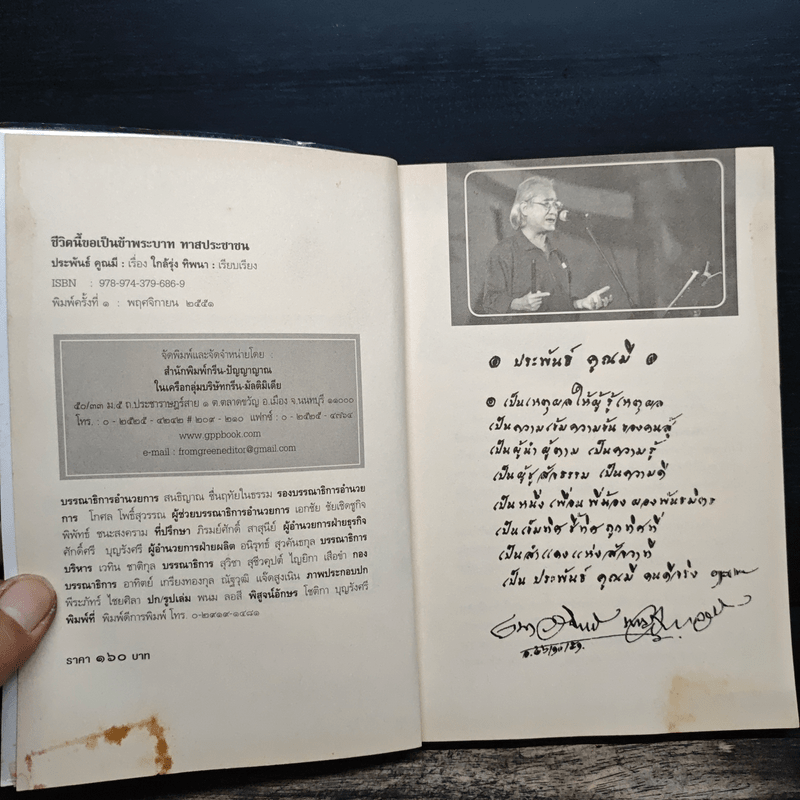 ชีวิตนี้ขอเป็นข้าพระบาท ทาสประชาชน
ประพันธ์ คูณมี : เรื่อง ใกล้รุ่ง ทิพนา : เรียบเรียง
ISBN : 978-974-379-686-9
พิมพ์ครั้งที่ ๑ : พฤศจิกายน ๒๕๕๑
จัดพิมพ์และจัดจำหน่ายโดย
สำนักพิมพ์กรีน-ปัญญาญาณ
ในเครือกลุ่มบริษัทกรีน-มัลติมิเดีย
๕๐/๓๓ ม.๕ ถ.ประชาราษฎร์สาย ๑ ต.ตลาดขวัญ อ.เมือง จ.นนทบุรี ๑๑๐๐๐
โทร. : ๐ - ๒๕๒๕ - ๔๒๔๒ # ๒๐๙ - ๒๑๐ แฟกซ์ : ๐ - ๒๕๒๕ - ๔๗๖๔
www.gppbook.com
e-mail : fromgreeneditor@gmail.com
บรรณาธิการอำนวยการ สนธิญาณ ชื่นฤทัยในธรรม รองบรรณาธิการอำนวย
การ โกศล โพธิ์สุวรรณ ผู้ช่วยบรรณาธิการอำนวยการ เอกชัย ชัยเชิดชูกิจ
พิพัทธ์ ชนะสงคราม ที่ปรึกษา ภิรมย์ศักดิ์ สาสุนีย์ ผู้อำนวยการฝ่ายธุรกิจ
ศักดิ์ศรี บุญรังศรี ผู้อำนวยการฝ่ายผลิต อนิรุทธ์ สุวคันธกุล บรรณาธิการ
บริหาร เวทิน ชาติกุล บรรณาธิการ สุวิชา สุชีวคุปต์ ไญยิกา เสือขำ กอง
บรรณาธิการ อาทิตย์ เกรียงทองกุล ณัฐวุฒิ แจ๊ดสูงเนิน ภาพประกอบปก
พีระภัทร์ ไชยศิลา ปก/รูปเล่ม พนม ลอสี พิสูจน์อักษร โชติกา บุญรังศรี
พิมพ์ที่ พิมพ์ดีการพิมพ์ โทร. ๐-๒๙๑๙-๑๔๘๑
ราคา ๑๖๐ บาท
ประพันธ์ คูณมี
เป็นเหตุผล ให้ผู้รู้เหตุผล
เป็นความเข้มความข้น ของคนสู้
เป็นผู้นำ ผู้ตาม เป็นความรู้
เป็นผู้ชูสัจธรรม เป็นความดี
เป็นหนึ่ง เพื่อน พี่น้อง ของพันธมิตร
เป็นเข็มทิศ ชี้ทิศ ถูกทิศที่
เป็นสำแดงแห่งสัจวาที
เป็น ประพันธ์ คูณมี คนดีจริง